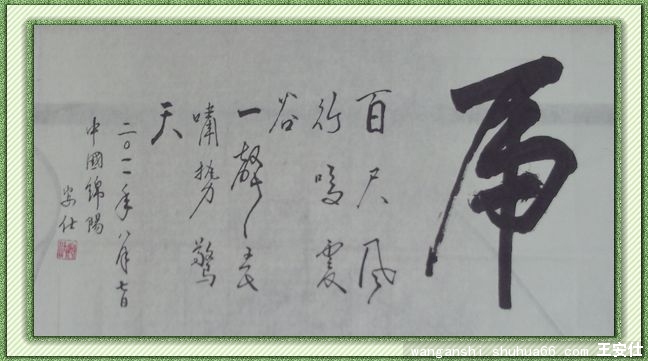 虎
百尺風
行鳴震
谷
一聲長
嘯勢驚
天
二〇一一年八月七日
中國綿陽
安仕
wanganshi.shuhua66.com 王安仕